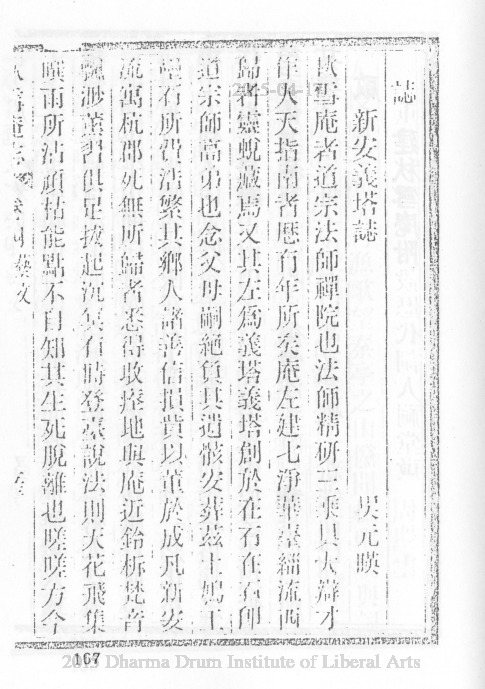 誌
新安義塔誌
吳元暎
秋雪庵者道宗法師禪院也法師精研三乘具大辯才
作人天指南者歷有年所矣庵左建七淨華臺緇流西
歸者靈蛻藏焉又其左為義塔義塔創於在石在石卽
道宗師高弟也念父母嗣絕負其遺骸安葬茲土鳩工
礱石所費浩繁其鄉人諸善信損貲以董於成凡新安
流寓杭郡死無所歸者悉得收瘞地與庵近鈴柝梵音
飄渺薰習俱足拔起沉冥有時登臺說法則天花飛集
曘雨所沾頑枯能點不自知其生死脫離也嗟嗟方今
秋雪庵志 卷四 藝文
167
2015 Dharma Drum Institute of Liberal Arts